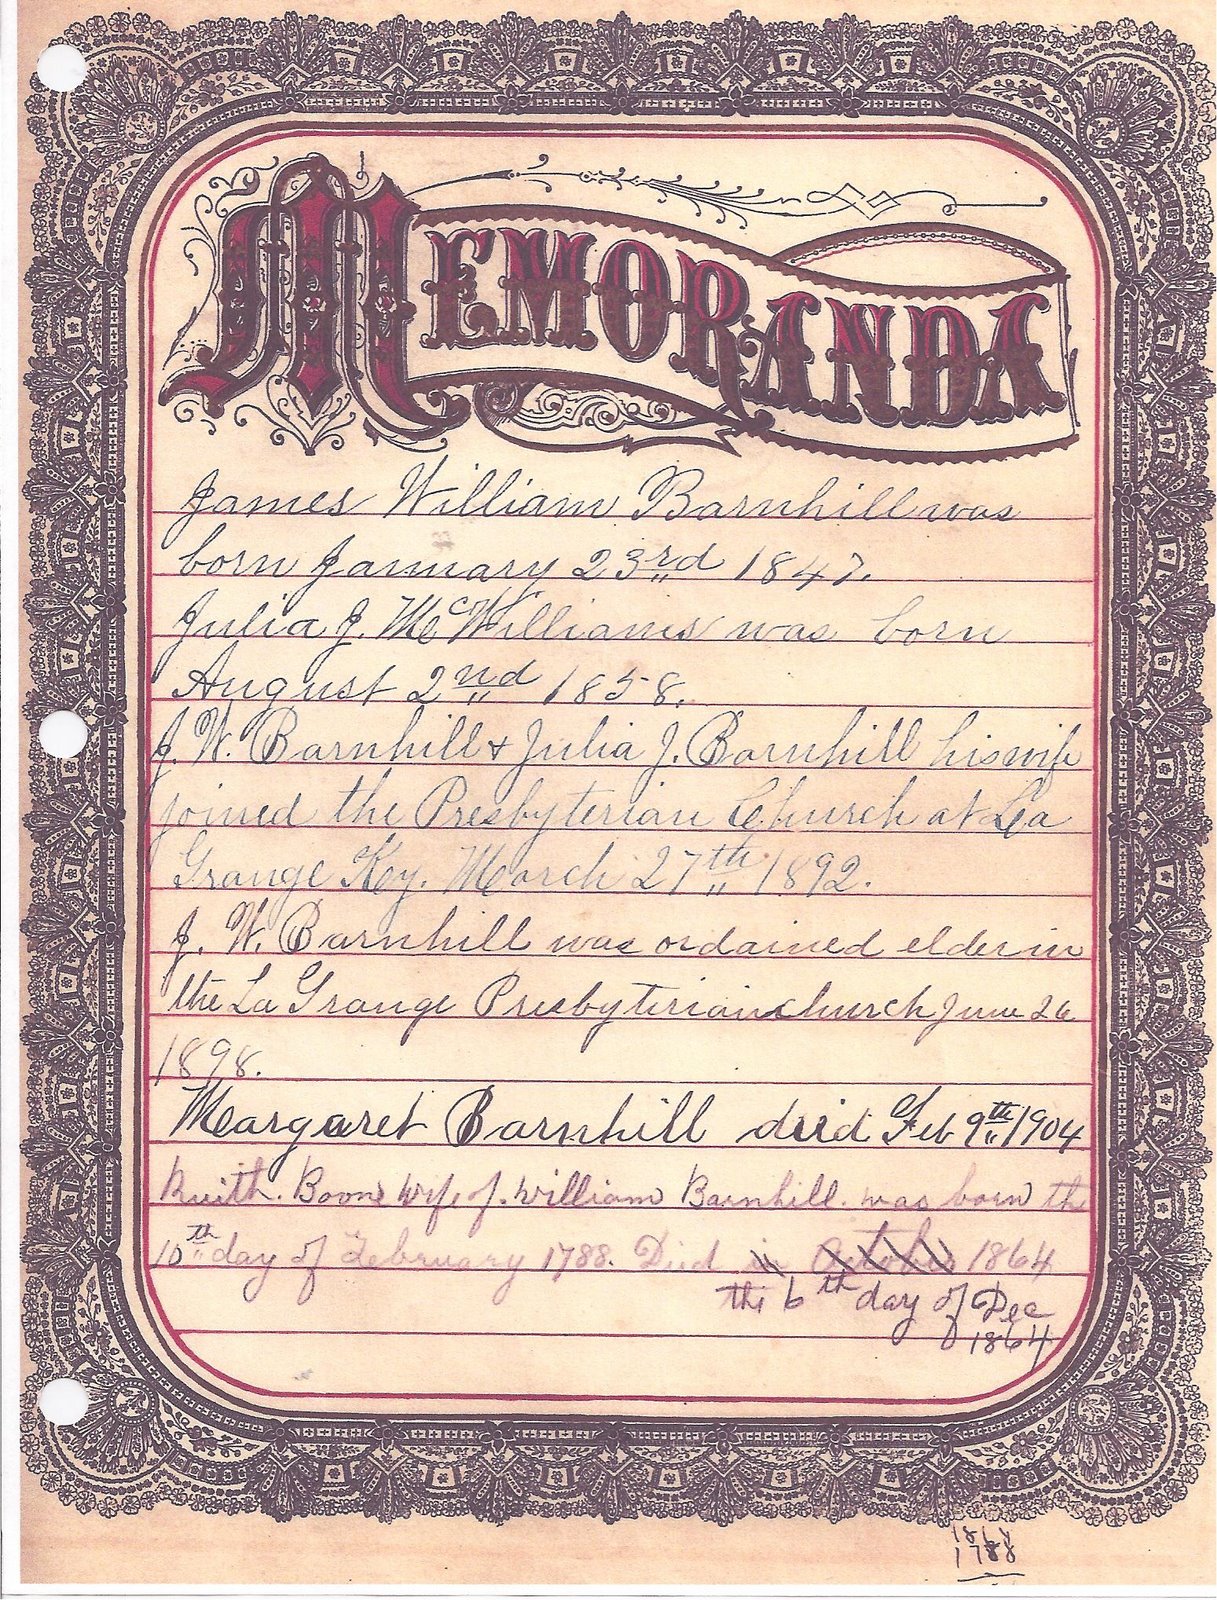 MEMORANDA
James William Barnhill was
born January 23rd 1847.
Julia J. McWilliams was born
August 2nd 1858.
J. W. Barnhill & Julia J. Barnhill his wife
joined the Presbyterian Church at La
Grange Ky. March 27th 1892.
J. W. Barnhill was ordained elder in
the La Grange Presbyterian church June 26
1898.
Margaret Barnhill died Feb 9th 1904
Ruith. Boone Wife of. William Barnhill. was born th
10th day of February 1788. Died in October 1864
the 6th day of Dec
1864
1788